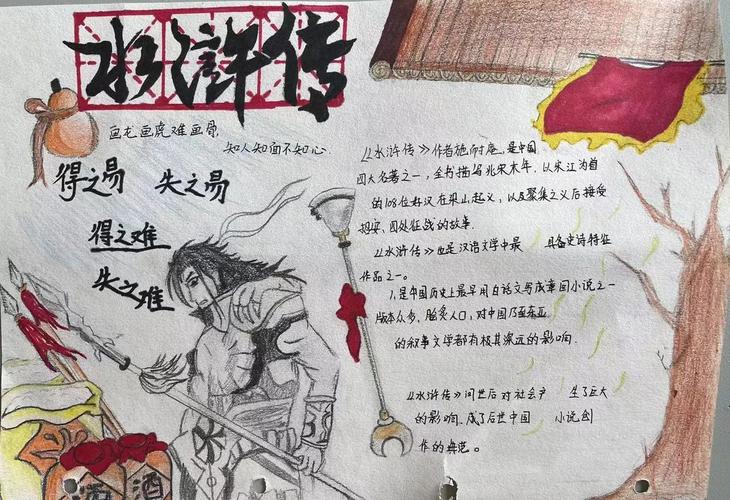 水浒传
画龙画虎难画骨,
知人知面不知心.
得之易 失之易
得之难
失之难
《水浒传》作者施耐庵,是中国
四大名著之一,全书描写北宋末年,以宋江为首
的108位好汉在梁山起义,以及聚集之义后接受
招安,四处征战的故事.
《水浒传》也是汉语文学中最 具备史诗特征
作品之一。
是中国历史上最早用白话文写成章回小说之一
版本众多,脍炙人口,对中国乃至东亚
的叙事文学都有极其深远的影响.
《水浒传》问世后对社会产 生了巨大
的影响,成了后世中国 小说创
作的典范。
酒
酒